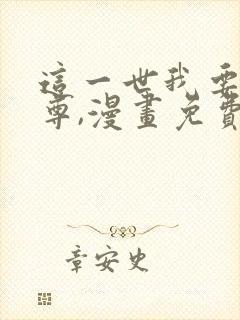 這一世我要
尊,漫畫免費
章安史